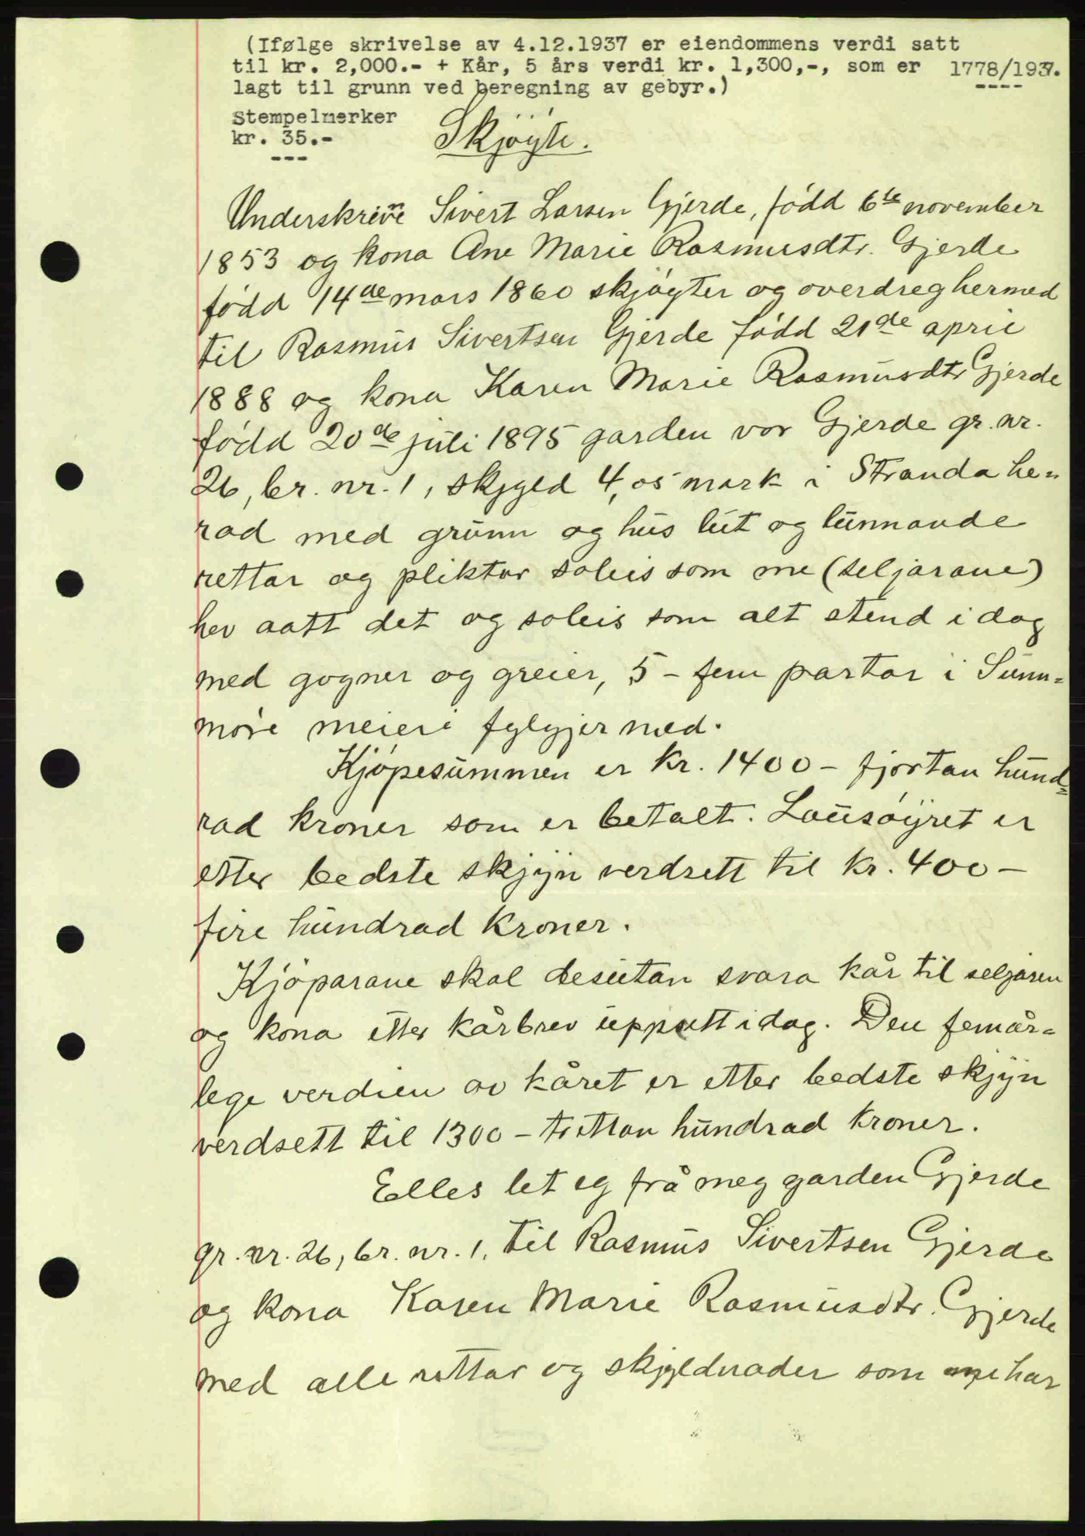 (Ifølge skrivelse av 4.12.1937 er eiendommens verdi satt
til kr. 2,000.- + Kår, 5 års verdi kr. 1,300,-, som er 1778/1937.
lagt til grunn ved beregning av gebyr.) ----
Stempelmerker
kr. 35.-
---
Skjøyte.
Underskrivne Sivert Larsen Gjerde, født 6te november
1853 og kona Ane Marie Rasmusdtr. Gjerde
født 14de mars 1860 skjøyter og overdreg hermed
til Rasmus Sivertsen Gjerde født 21de april
1888 og kona Karen Marie Rasmusdtr Gjerde
født 20de juli 1895 garden vor Gjerde gr. nr.
26, br. nr. 1, skyld 4,05 mark i Stranda he=
rad med grunn og hus lut og lunnande
rettar og pliktar soleis som me (seljarane)
hev aatt det og soleis som alt stend i dag
med gogner og greier, 5 - fem partar i Sunn=
møre meieri fylgjer med.
Kjøpesummen er kr. 1400 - fjortan hund=
rad kroner som er betalt. Lausøyret er
etter bedste skjyn verdsett til kr. 400 -
fire hundrad kroner.
Kjøparane skal desutan svara kår til seljaren
og kona etter kårbrev uppsett idag. Den femår=
lege verdien av kåret er etter bedste skjyn
verdsett til 1300 - trettan hundrad kroner.
Elles let eg frå meg garden Gjerde
gr. nr. 26, br. nr. 1, til Rasmus Sivertsen Gjerde
og kona Karen Marie Rasmusdtr. Gjerde
med alle rettar og skyldnader som me har